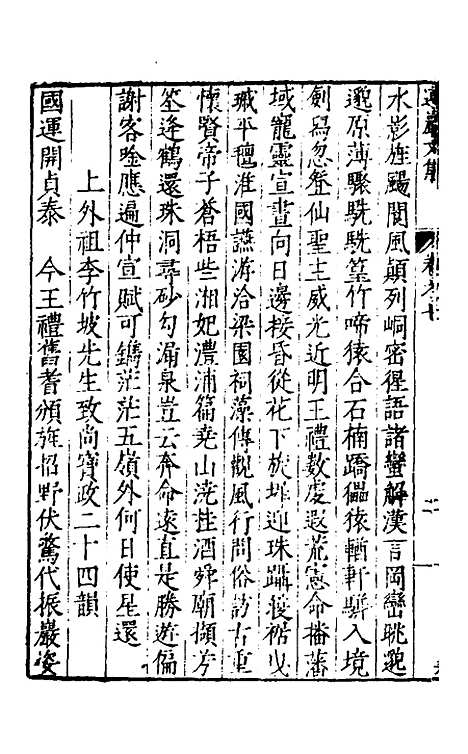 水影旌颺閬風顛列峒密徑語諸蠻解漢言岡巒眺邈
邈原薄驟駪駪篁竹啼猿合石楠蹻儡猿輶軒騈入境
劍舄忽登仙聖主威光近明王禮數虔遐荒憲命播藩
域寵靈宣晝向日邊接昏從花下旋墀迎珠躡履裾曳
珹平氊淮國讌游洽梁園祠藻傳觀風行問俗訪古重
懷賢帝子蒼梧些湘妃澧浦篇堯山澆桂酒舜廟擷芳
筌逢鶴還珠洞尋砂勾漏泉豈云奔命遠直是勝遊偏
謝客唫應遍仲宣賦可鐫茫茫五嶺外何日使星還
上外祖李竹坡先生致尚寶政二十四韻
國運開貞泰 今王禮舊耆頒旌招野伏騖代振巖姿